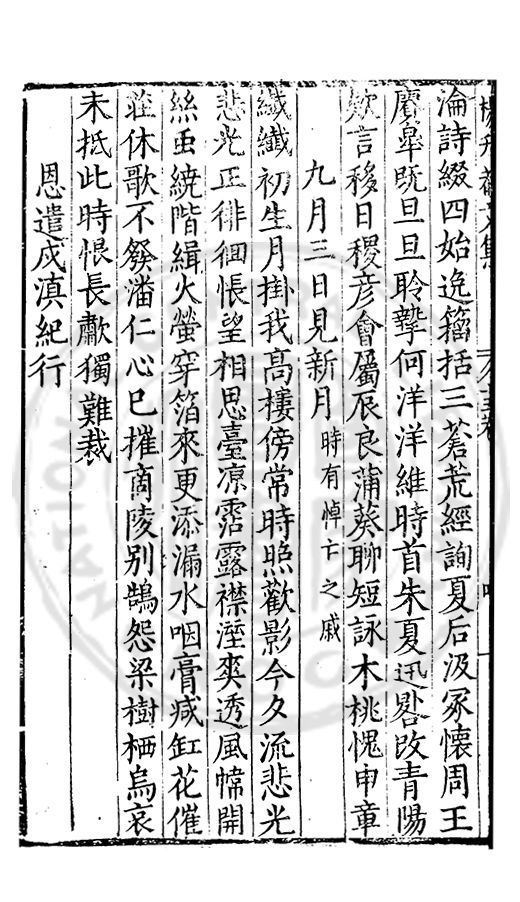 淪詩綴四始逸籀括三蒼荒經詢夏后汲冢懷周王
賡皐旣旦旦聆摯何洋洋維時首朱夏迅晷改青陽
歟言移日稷彥會屬辰良蒲葵聊短詠木桃愧申章
九月三日見新月時有悼亡之戚
纖纖初生月掛我高樓傍常時照歡影今夕流悲光
悲光正徘徊悵望相思臺凉霑露襟溼爽透風幃開
絲虫繞階緝火螢穿箔來更添漏水咽膏減缸花催
莊休歌不發潘仁心已摧商陵別鵠怨梁樹栖烏哀
未抵此時恨長歗獨難裁
恩遣戍滇紀行